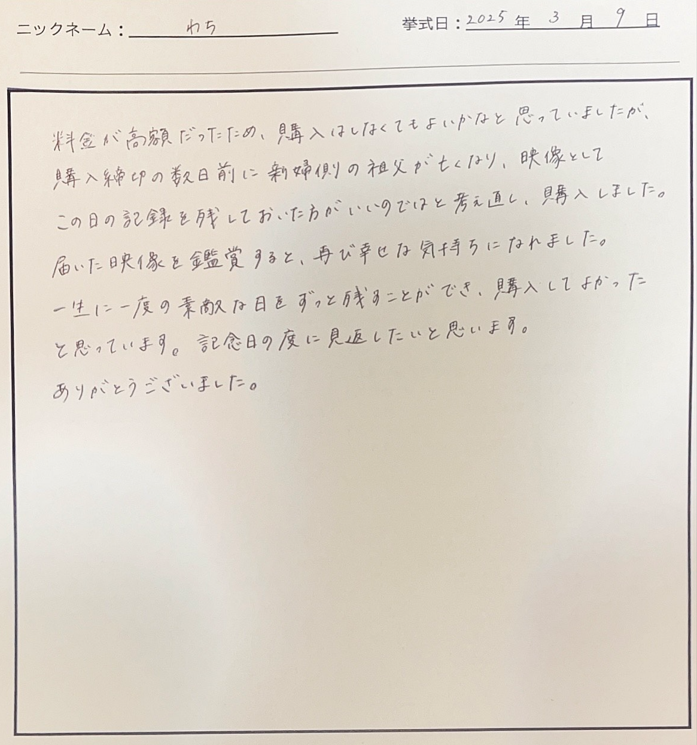 ニックネーム： わち 挙式日：2025年 3月 9日
料金が高額だったため、購入はしなくてもよいかなと思っていましたが、
購入締切の数日前に新婦側の祖父が亡くなり、映像として
この日の記録を残しておいた方がいいのではと考え直し、購入しました。
届いた映像を鑑賞すると、再び幸せな気持ちになれました。
一生に一度の素敵な日をずっと残すことができ、購入してよかった
と思っています。記念日の度に見返したいと思います。
ありがとうございました。